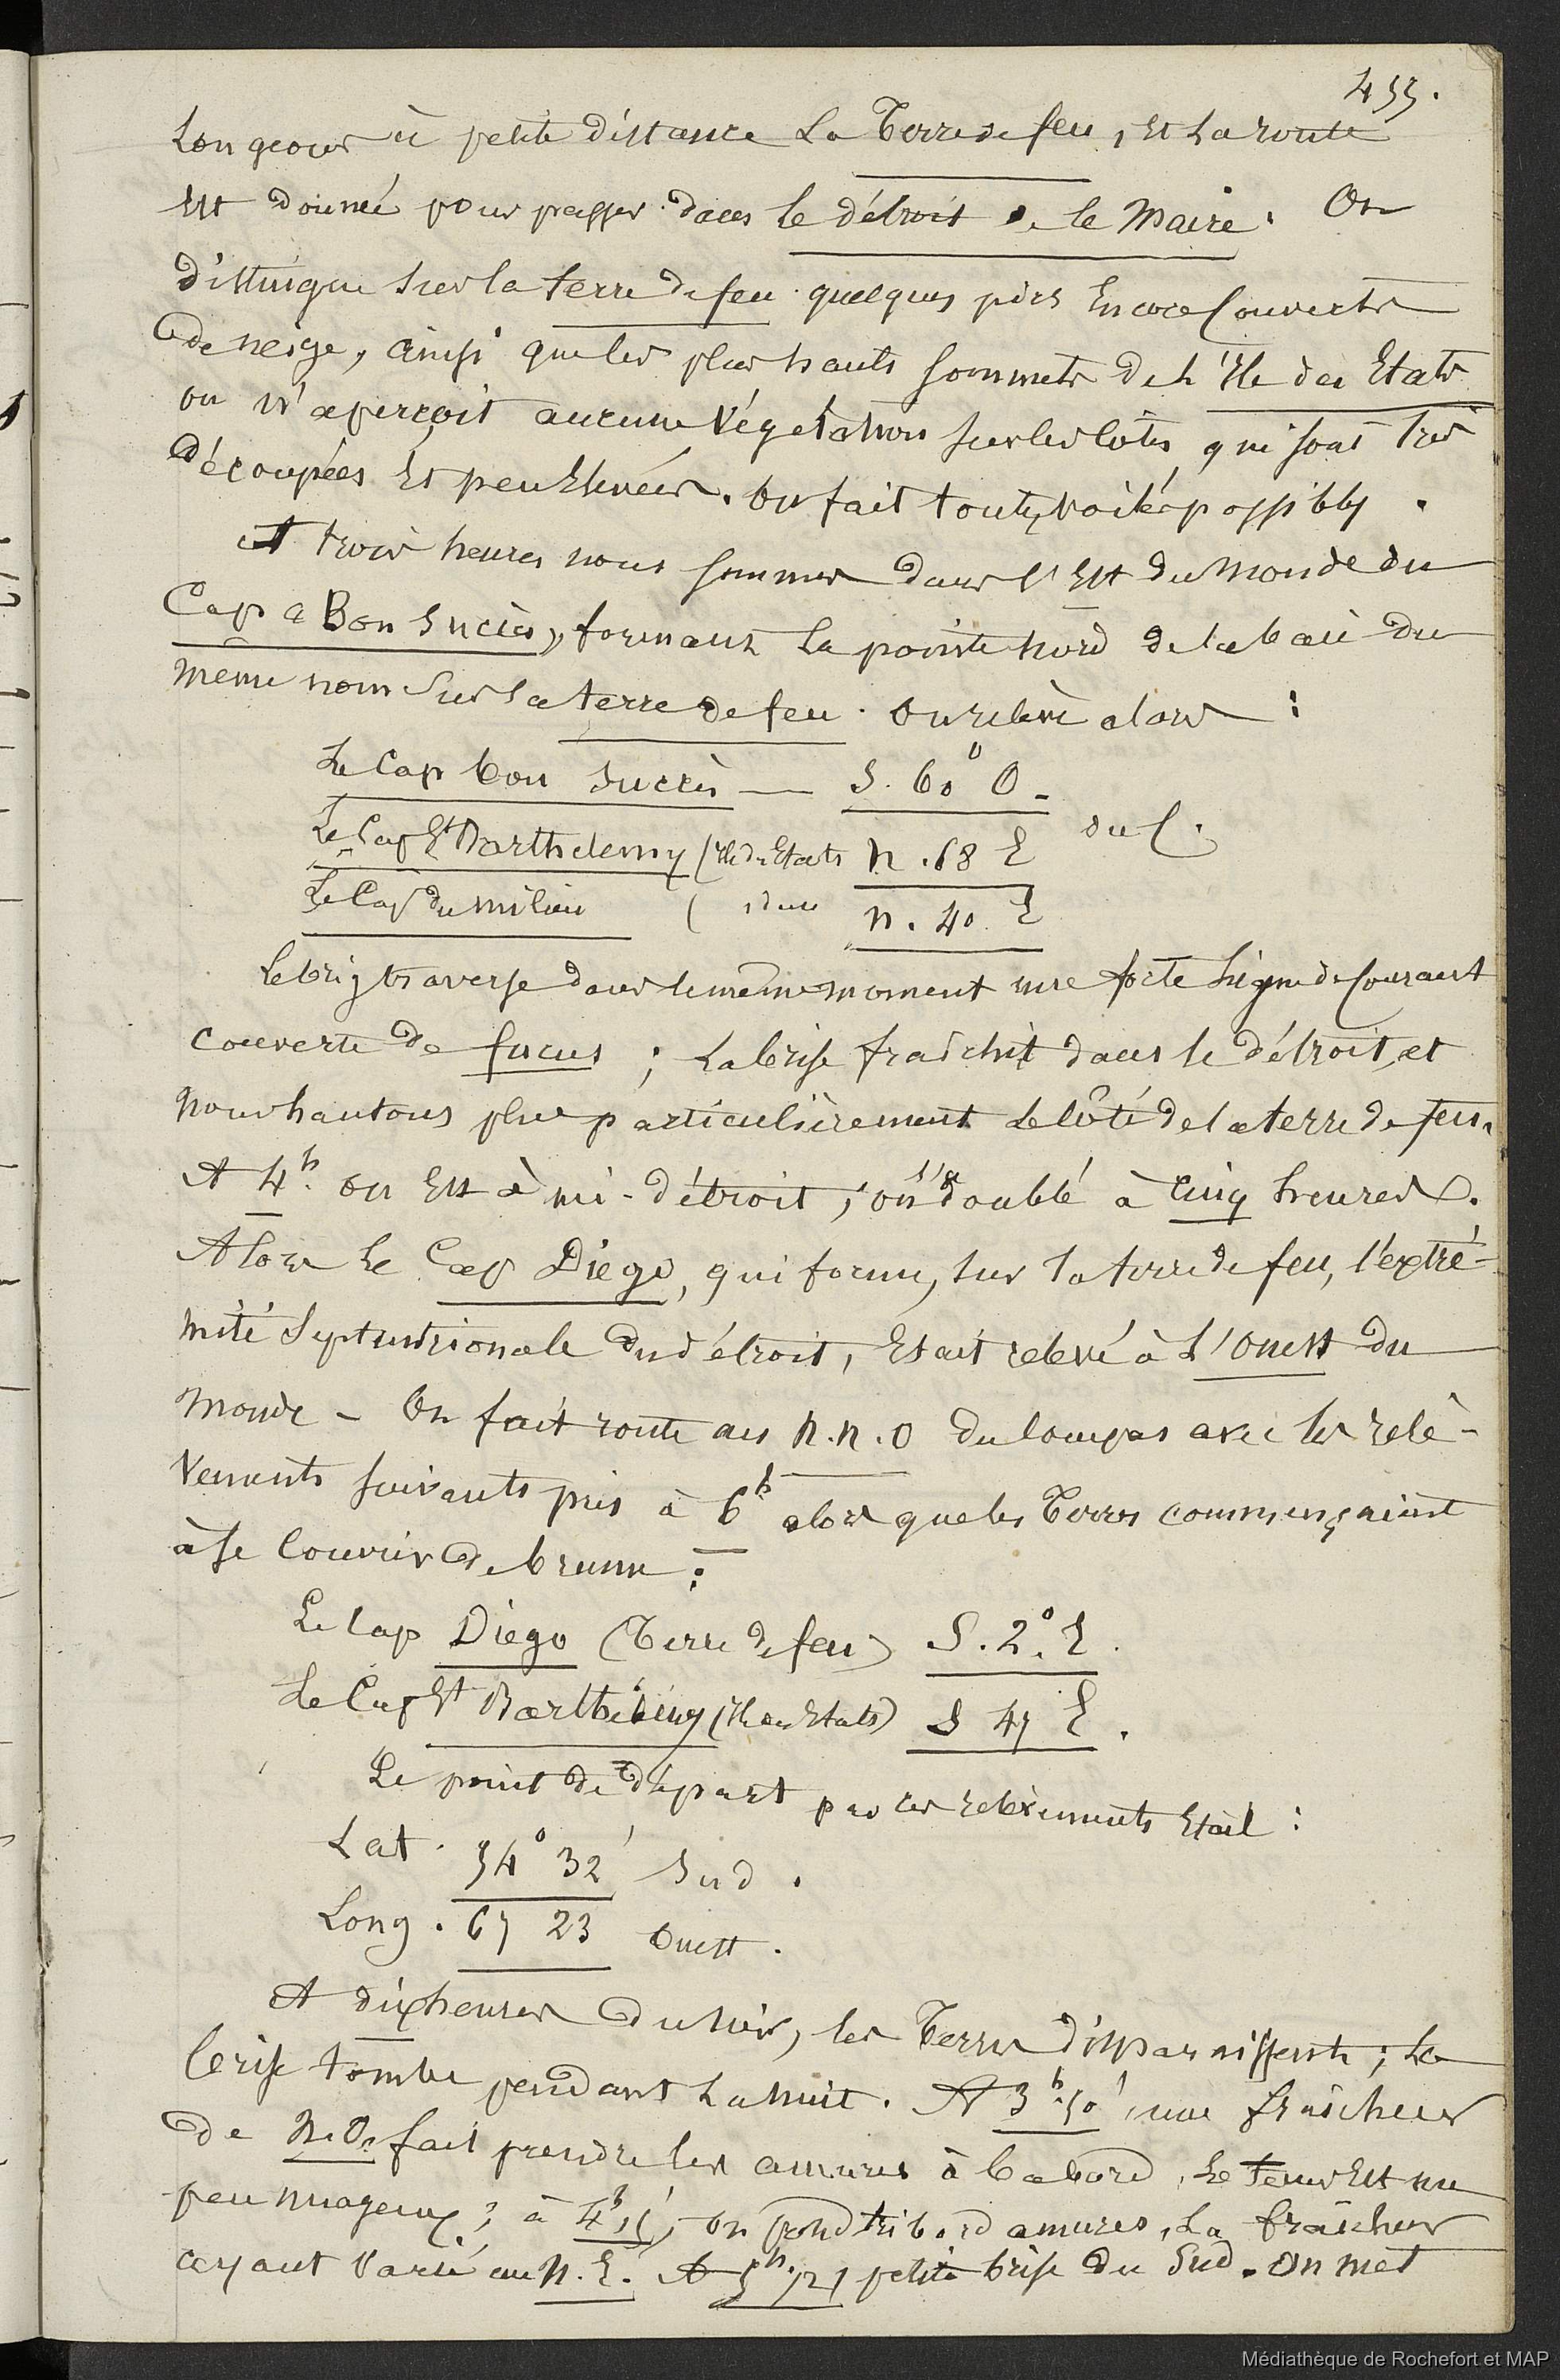 455.
Longeons à petite distance la Terre de feu, et la route
est donnée pour passer dans le détroit de le Maire. On
distingue sur la terre de feu quelques pics encore couverts
de neige, ainsi que les plus hauts sommets de l'Ile des Etats
on n'aperçoit aucune végétation sur les côtes qui sont très
découpées et peu élevées. On fait toutes voiles possibles.
A trois heures nous sommes dans l'Est du monde du
Cap « Bon Succès », formant la pointe nord de la baie du
même nom sur la terre de feu. On relève alors :
Le Cap bon Succès — S. 60° O.
Le Cap St Barthelemy (Ile des Etats N. 68 E du C.
Le Cap du milieu ( idem N. 40 E
Le brig traverse dans le même moment une forte ligne de courant
couverte de fucus ; la brise fraîchit dans le détroit, et
nous hantons plus particulièrement le côté de la terre de feu.
A 4h. on est à mi-détroit, on l'a doublé à cinq heures.
Alors le Cap Diégo, qui forme, sur la terre de feu, l'extré-
mité septentrionale du détroit, était relevé à l'ouest du
monde - On fait route au N.N.O du compas avec les relè-
vements suivants pris à 6h alors que les Terres commençaient
à se couvrir de brume :
Le Cap Diégo (Terre de feu) S. 2°. E.
Le Cap St Barthélémy (Ile des Etats) S 45 E.
Le point de départ par ces relèvements était :
Lat. 54° 32' Sud.
Long. 67 23 Ouest.
A dix heures du soir, les Terres disparaissent ; la
brise tombe pendant la nuit. A 3h.50', une fraîcheur
de N.O. fait prendre les amures à babord, le tems est un
peu nuageux ; à 4h on prend tribord amures, la fraîcheur
ayant varié au N.E. A 5h. 1/2, petite brise du Sud. On met
Médiathèque de Rochefort et MAP